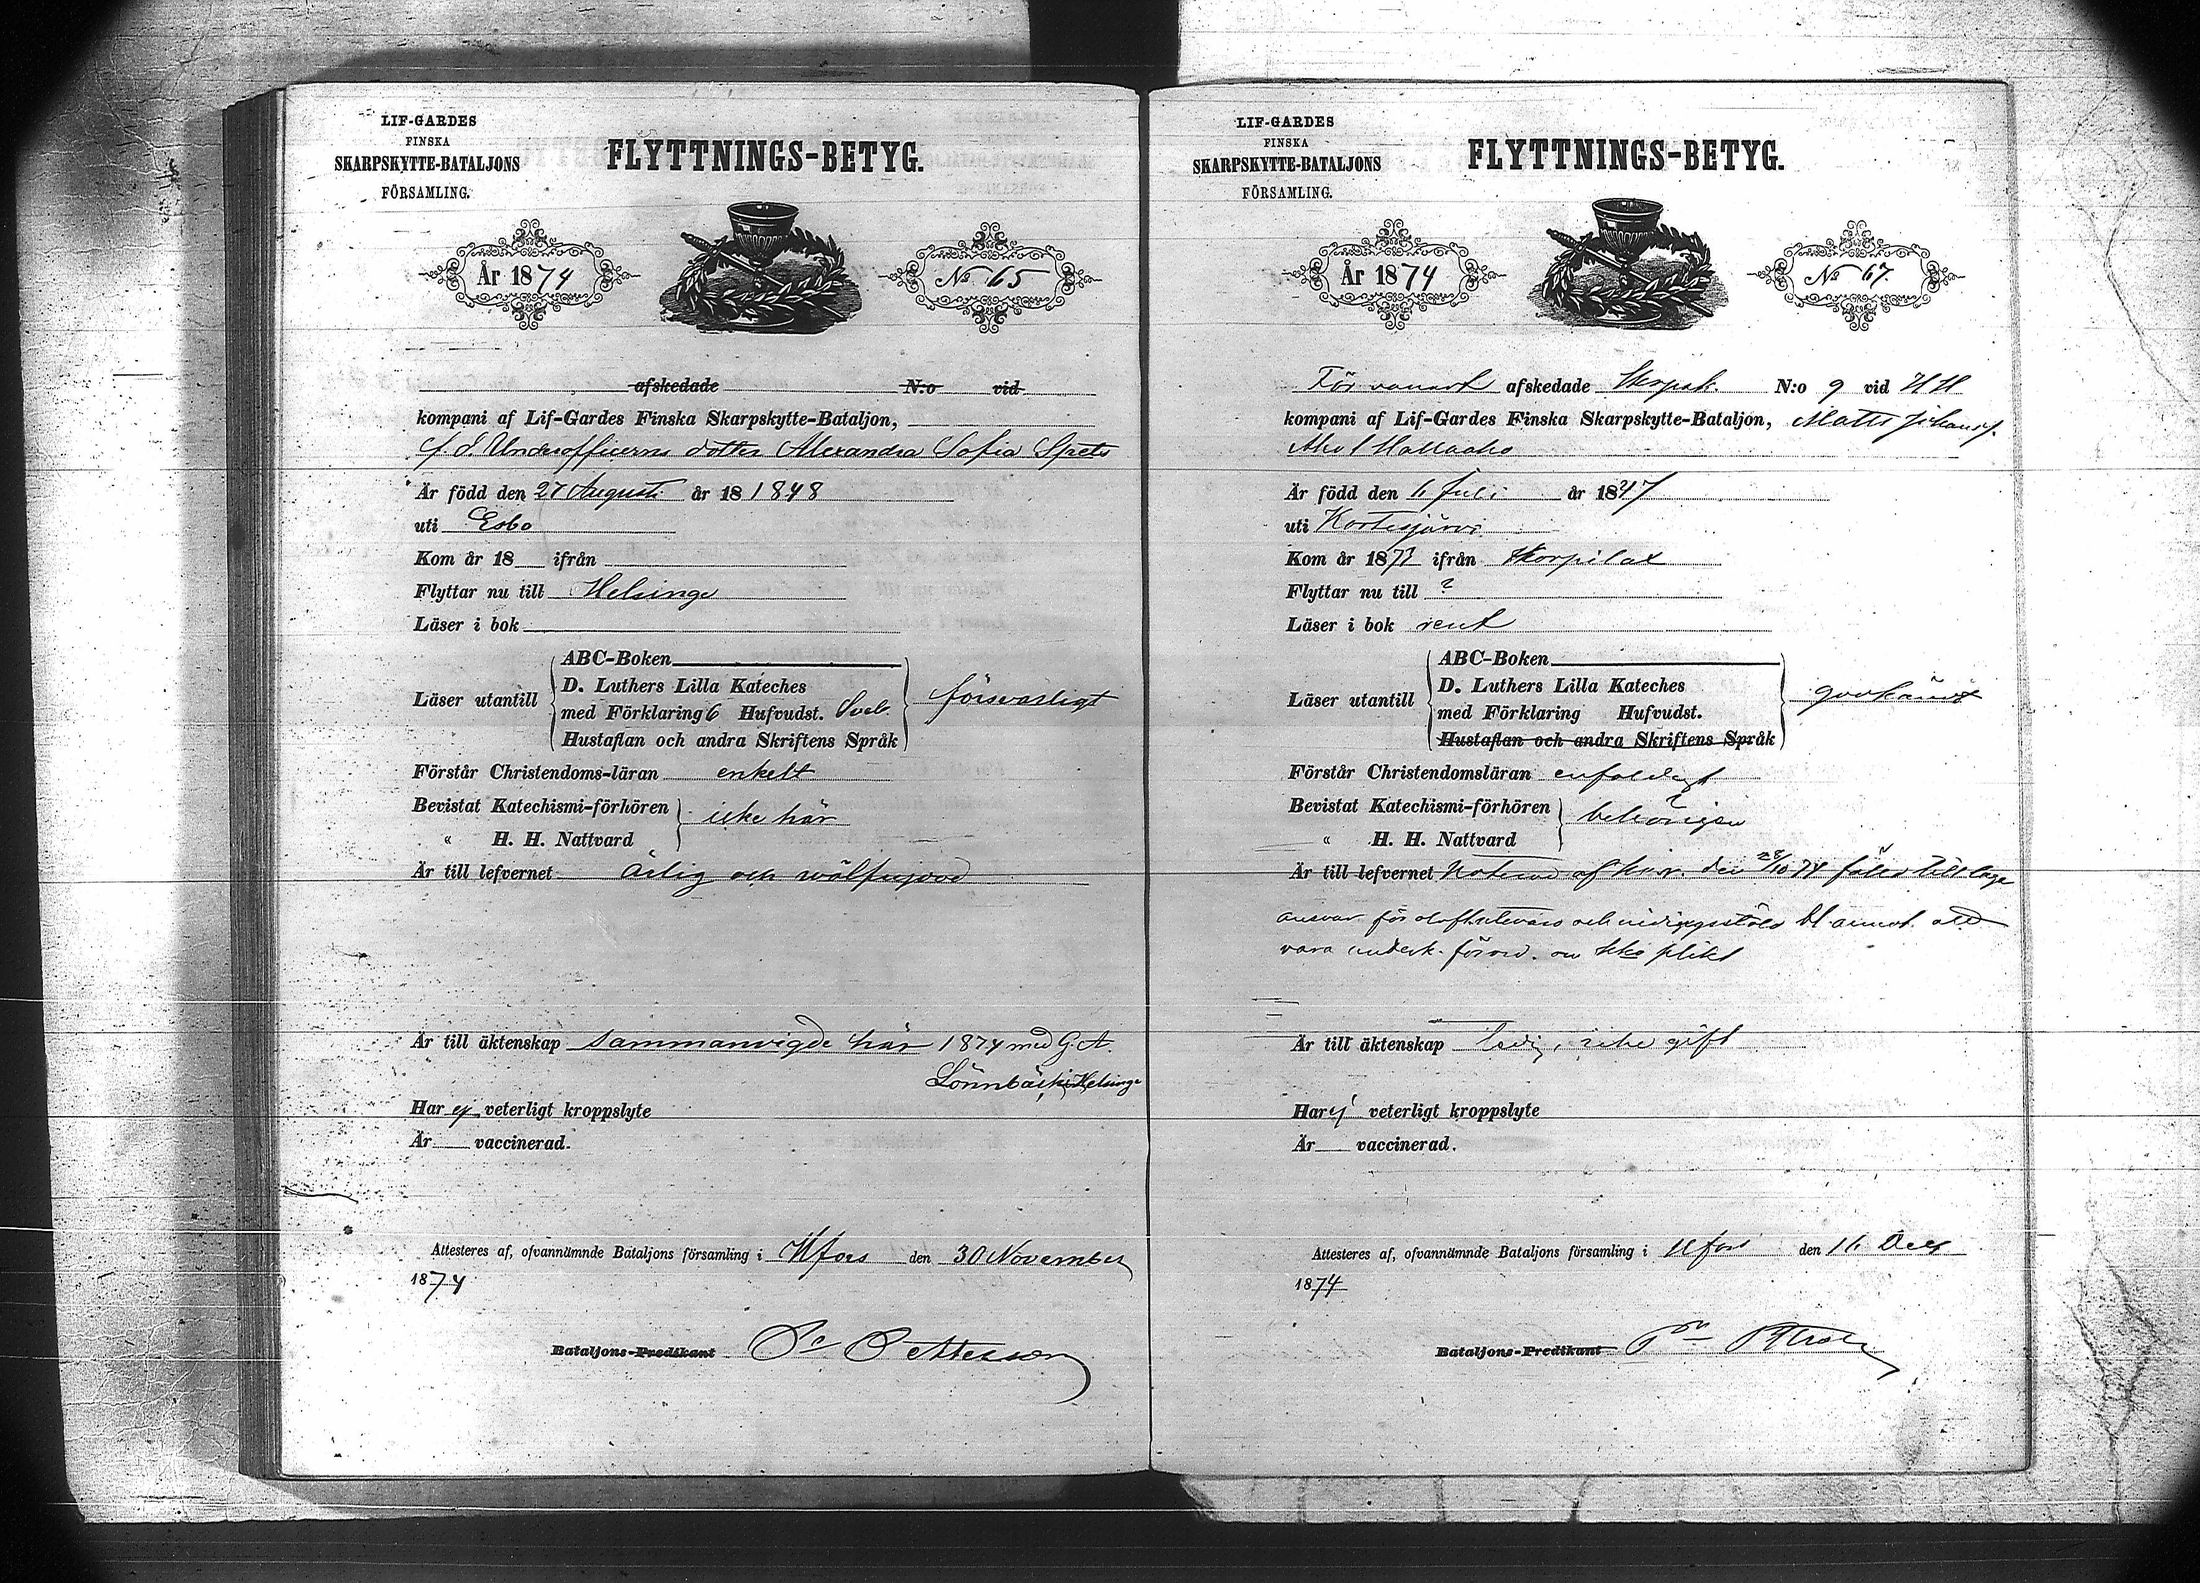 LIF-GARDES
FINSKA
SKARPSKYTTE-BATALJONS
FÖRSAMLING.
FLYTTNINGS-BETYG.
År 1874
No 65
afskedade N:o vid
kompani af Lif-Gardes Finska Skarpskytte-Bataljon,
f. d. Underofficerns dotter Alexandra Sofia Spets
Är född den 27 Augusti år 18 1848
uti Esbo
Kom år 18 ifrån
Flyttar nu till Helsinge
Läser i bok
ABC-Boken
D. Luthers Lilla Kateches
Läser utantill
med Förklaring 6 Hufvudst. Sveb. försvarligt
Hustaflan och andra Skriftens Språk
Förstår Christendoms-läran enkelt
Bevistat Katechismi-förhören icke här
« H. H. Nattvard
Är till lefvernet ärlig och wälfrejdad
Är till äktenskap sammanvigde här 1874 med G. A.
Lönnbäck i Helsinge
Har ej veterligt kroppslyte
Är vaccinerad.
Attesteres af, ofvannämnde Bataljons församling i Hfors den 30 November
1874
Bataljons-Predikant Pettersson
LIF-GARDES
FINSKA
SKARPSKYTTE-BATALJONS
FÖRSAMLING.
FLYTTNINGS-BETYG.
År 1874
No 67.
För afskedade Skarpsk. N:o 9 vid
kompani af Lif-Gardes Finska Skarpskytte-Bataljon, Matts Johansf.
Aho
Är född den 6 Juli år 1847
uti Kortesjärvi
Kom år 1873 ifrån Korpilax
Flyttar nu till ?
Läser i bok rent
ABC-Boken
D. Luthers Lilla Kateches
Läser utantill godkändt
med Förklaring Hufvudst.
Hustaflan och andra Skriftens Språk
Förstår Christendomsläran enfaldigt
Bevistat Katechismi-förhören behörigen
« H. H. Nattvard
Är till lefvernet af den 28/10 74 till laga
ansvar för och bl. annat
vara plikt
Är till äktenskap ledig, icke gift
Har ej veterligt kroppslyte
Är vaccinerad.
Attesteres af, ofvannämnde Bataljons församling i Hfors den 16 Decr
1874
Bataljons-Predikant